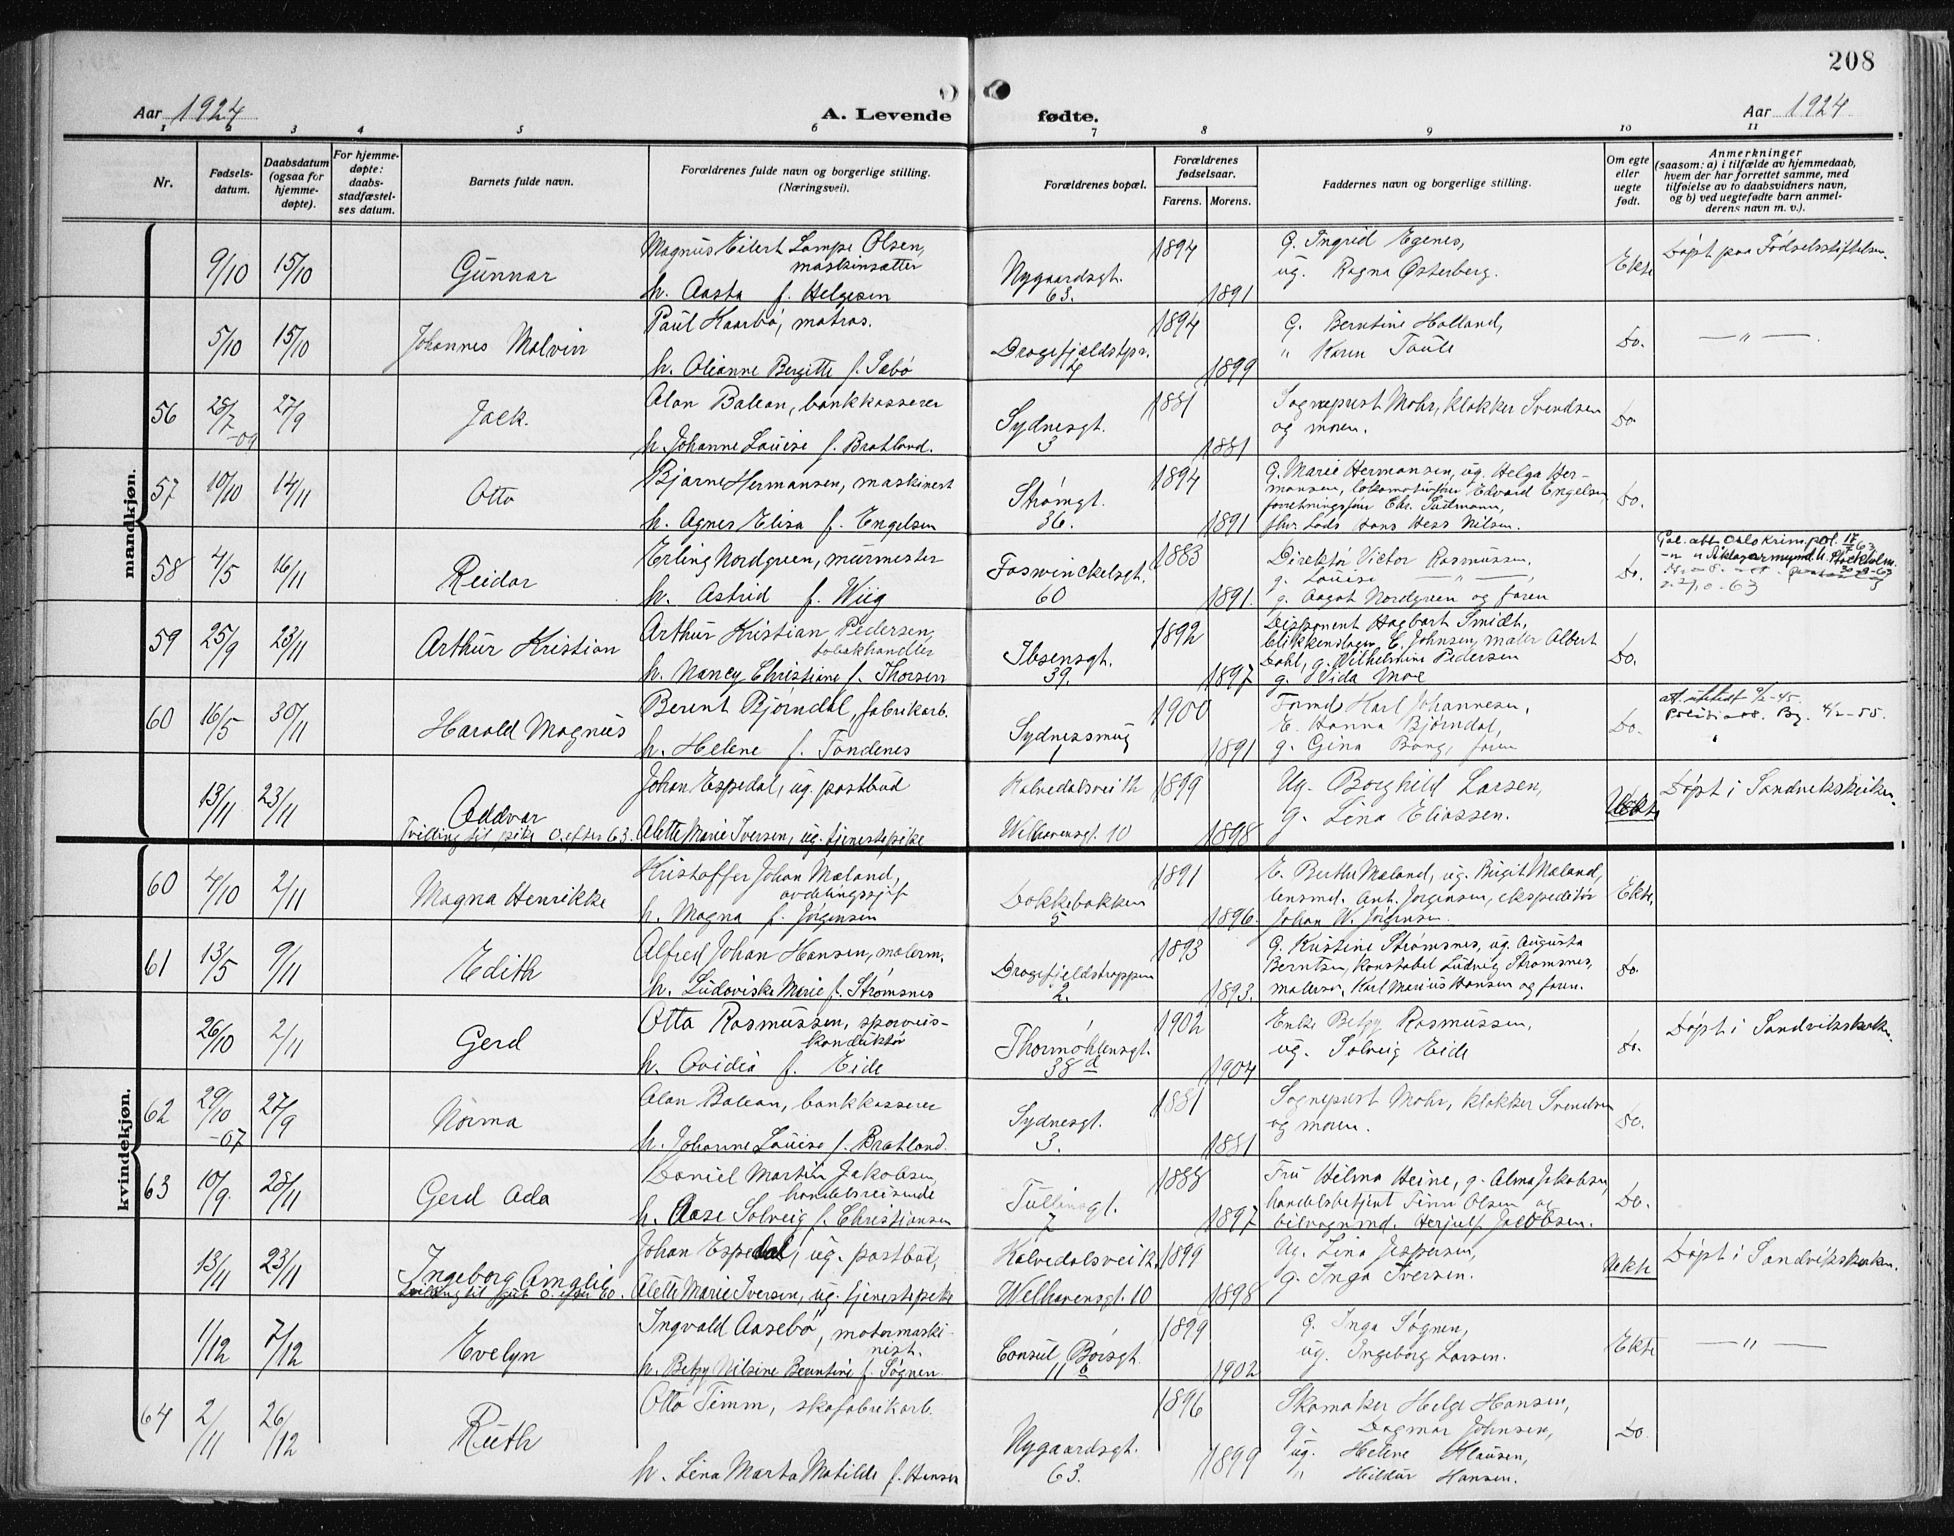 208
Aar 1924
A. Levende
fødte.
Aar 1924
1 2 3 4 5 6 7 8 9 10 11
Nr.
Fødsels-
datum.
Daabsdatum
(ogsaa for
hjemme-
døpte).
For hjemme-
døpte:
daabs-
stadfæstel-
ses datum.
Barnets fulde navn.
Forældrenes fulde navn og borgerlige stilling.
(Næringsvei).
Forældrenes bopæl.
Forældrenes
fødselsaar.
Farens. Morens.
Faddernes navn og borgerlige stilling.
Om egte
eller
uegte
født.
Anmerkninger
(saasom: a) i tilfælde av hjemmedaab,
hvem der har forrettet samme, med
tilføielse av to daabsvidners navn,
og b) ved uegtefødte barn anmel-
derens navn m. v.).
mandkjøn.
9/10 15/10 Gunnar
Magnus Eilert Lampe Olsen,
maskinsætter
h. Aasta f. Helgesen
Nygaardsgt.
63.
1894
1891
G. Ingrid Egenes,
ug. Ragna Østerberg.
Ekte
Døpt paa Fødselsstiftelsen
5/10 15/10 Johannes Malvin
Paul Kaarbø, matros.
h. Olianne Bergitte f. Sæbø
4
1894
1899
G. Berntine Holland,
" Karen Taule
Do.
— " —
56 28/7 -09 27/9 Jack.
Alan Balean, bankkasserer
h. Johanne Louise f. Bratland.
Sydnesgt.
3
1881
1881
Sogneprest Mohr, klokker Svendsen
og moren.
Do
57 10/10 14/11 Otto
Bjarne Hermansen, maskinist
h. Agnes Elisa f. Engelsen
Strømgt.
36.
1894
1891
G. Marie Hermansen, ug. Helga Her-
mansen, Edvard Engelsen
Hans Hess Nilsen.
Do.
58 4/5 16/11 Reidar
Erling Nordgreen, murmester
h. Astrid f. Wiig
Foswinckelsgt.
60
1883
1891.
Direktør Victor Rasmussen,
g. Louise — " —
g. Aagot Nordgreen og faren
Do.
Oslo krim.pol. 17/7 63
Stockholm
59 25/9 23/11 Arthur Kristian
Arthur Kristian Pedersen,
tobakhandler
h. Nancy Christine f. Thorsen
Ibsensgt.
39.
1892
1897
Disponent Hagbart Smidt,
blikkenslager C. Johnsen, maler Albert
Dahl, g. Wilhelmine Pedersen
g. Vida Moe
Do.
60 16/5 30/11 Harald Magnus
Berent Bjørndal, fabrikarb.
h. Helene f. Fondenes
Sydnessmug
1
1900
1891
Formd Karl Johannesen,
E. Hanna Bjørndal,
g. Gina Bang, faren
Do.
13/11 23/11 Oddvar
Tvilling til pike 0. efter 63.
Johan Espedal, ug. postbud
Alette Marie Iversen, ug. tjenestepike
Kalvedalsvei 12
Welhavensgt. 10
1899
1898
Ug. Borghild Larsen,
g. Lina Eliassen.
Uekte
Døpt i Sandvikskirken.
kvindekjøn.
60 4/10 2/11 Magna Henrikke
Kristoffer Johan Mæland,
avdelingssjef
h. Magna f. Jørgensen
Dokkebakken
5
1891
1896.
E. Berthe Mæland, ug. Birgit Mæland,
lensmd. Ant. Jørgensen, ekspeditør
Johan W. Jørgensen.
Ekte,
61 13/5 9/11 Edith
Alfred Johan Hansen, malerm.
h. Ludoviske Marie f. Strømsnes
Dragefjeldstrappen
2.
1893
1893.
G. Kristine Strømsnes, ug. Augusta
Berntsen, konstabel Ludvig Strømsnes,
malersv. Karl Marius Hansen og faren.
do.
26/10 2/11 Gerd
Otto Rasmussen, sporveis-
konduktør
h. Ovidia f. Eide
Thormøhlensgt.
38 d
1902
1904
Enke Betzy Rasmussen,
ug. Solveig Eide
do.
Døpt i Sandvikskirken.
62 29/10 -07 27/9 Norma
Alan Balean, bankkasserer
h. Johanne Louise f. Bratland.
Sydnesgt.
3.
1881
1881
Sogneprest Mohr, klokker Svendsen
og moren.
do.
63 10/9 28/11 Gerd Ada
Daniel Martin Jakobsen,
handelsreisende
h. Aase Solveig f. Christiansen
Tullinsgt.
7
1888
1897
Fru Helma Heine, g. Alma Jakobsen,
handelsbetjent Finn Olsen og
bilvognmd. Herjulf Jacobsen.
Do.
13/11 23/11 Ingeborg Amalie
Johan Espedal, ug. postbud,
Alette Marie Iversen, ug. tjenestepike
Kalvedalsvei 12
Welhavensgt. 10
1899
1898
U. Lina Jespersen,
g. Inga Iversen.
Uekte
Døpt i Sandvikskirken.
1/12 7/12 Evelyn
Ingvald Aasebø, motormaski-
nist.
h. Betzy Nilsine Berntine f. Søgnen
Consul Børsgt.
11 b
1899
1902
G. Inga Søgnen,
ug. Ingeborg Larsen.
Ekte
— " —
64 2/11 26/12 Ruth
Otto Timm, skofabrikarb.
h. Lina Marta Matilde f. Hansen
Nygaardsgt.
63.
1896
1899
Skomaker Helge Hansen,
g. Dagmar Johnsen,
ug. Helene Klausen,
" Hildur Hansen.
Do